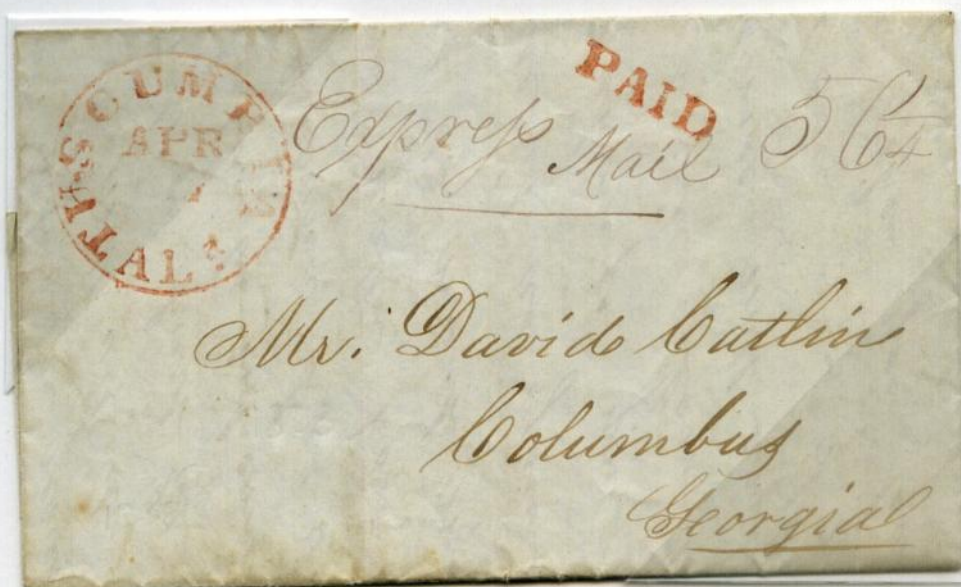 TUSCUMBIA
APR
ALA
PAID
Express Mail 56¼
Mr. David Catlin
Columbus
Georgia